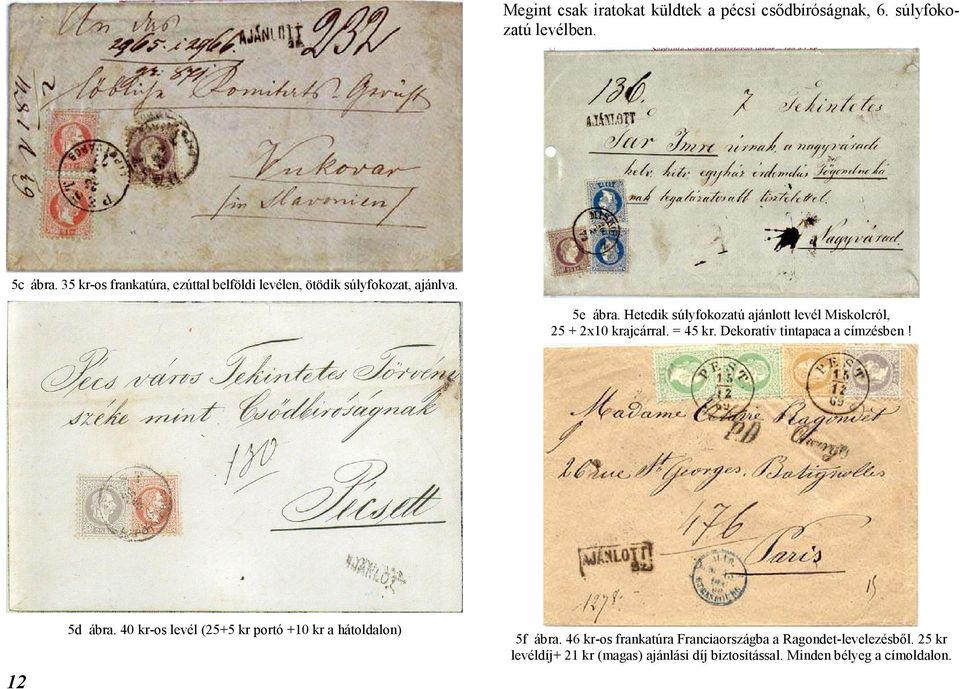 Megint csak iratokat küldtek a pécsi csődbíróságnak, 6. súlyfoko-
zatú levélben.
AJÁNLOTT
232
2965. i 2966.
Komitats-Gericht
Vukovar
Slavonien
5c ábra. 35 kr-os frankatúra, ezúttal belföldi levélen, ötödik súlyfokozat, ajánlva.
136.
7 Tekintetes
AJÁNLOTT
Imre úrnak, a nagyváradi
helv. hitv. egyház érdemdús Főgondnoká
nak legalázatosabb tisztelettel.
Nagyvárad.
5e ábra. Hetedik súlyfokozatú ajánlott levél Miskolcról,
25 + 2x10 krajcárral. = 45 kr. Dekoratív tintapaca a címzésben !
Pécs város Tekintetes Törvény
széke mint Csődbíróságnak
130
Pécsett
AJÁNLOTT
5d ábra. 40 kr-os levél (25+5 kr portó +10 kr a hátoldalon)
PEST
15
12
69
PEST
15
12
69
Madame Ragondet
PD
26 rue St Georges. Batignolles
476
Paris
AJÁNLOTT
1278.
15
5f ábra. 46 kr-os frankatúra Franciaországba a Ragondet-levelezésből. 25 kr
levéldíj+ 21 kr (magas) ajánlási díj biztosítással. Minden bélyeg a címoldalon.
12